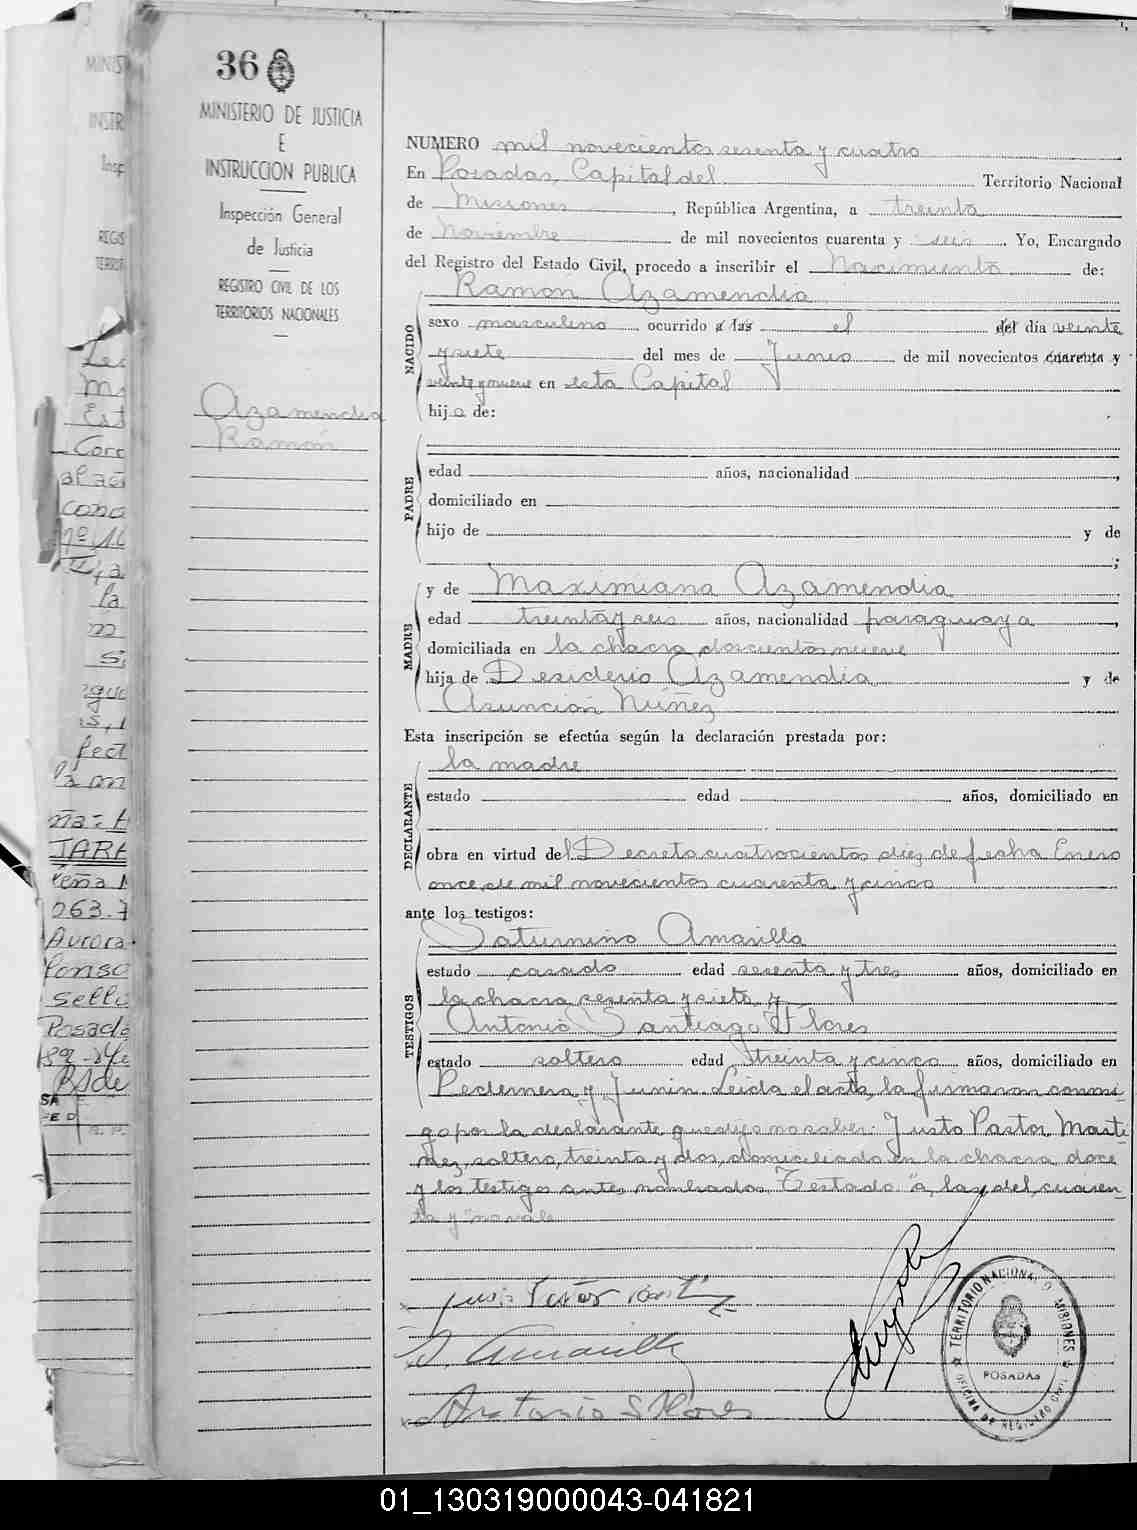 36
MINISTERIO DE JUSTICIA
E
INSTRUCCION PUBLICA
Inspección General
de Justicia
REGISTRO CIVIL DE LOS
TERRITORIOS NACIONALES
Azamendia
Ramón
NUMERO mil novecientos sesenta y cuatro
En Posadas, Capital del Territorio Nacional
de Misiones, República Argentina, a treinta
de Noviembre de mil novecientos cuarenta y seis. Yo, Encargado
del Registro del Estado Civil, procedo a inscribir el Nacimiento de:
NACIDO
Ramón Azamendia
sexo masculino ocurrido a las el del día veinte
y siete del mes de Junio de mil novecientos cuarenta y
veinte y nueve en esta Capital
hijo de:
PADRE
edad años, nacionalidad ,
domiciliado en
hijo de y de
;
MADRE
y de Maximiana Azamendia
edad treinta y seis años, nacionalidad paraguaya,
domiciliada en la chacra doscientos nueve
hija de Desiderio Azamendia y de
Asunción Núñez
Esta inscripción se efectúa según la declaración prestada por:
DECLARANTE
la madre
estado edad años, domiciliado en
obra en virtud del Decreto cuatrocientos diez de fecha Enero
once de mil novecientos cuarenta y cinco
ante los testigos:
TESTIGOS
Saturnino Amarilla
estado casado edad sesenta y tres años, domiciliado en
la chacra sesenta y siete y
Antonio Santiago Flores
estado soltero edad treinta y cinco años, domiciliado en
Pedernera y Junin. Leida el acta, la firmaron conmi-
go por la declarante que dijo no saber. Justo Pastor Marti-
nez, soltero, treinta y dos, domiciliado en la chacra doce
y los testigos antes nombrados. Testado "a, las, del, cuaren-
ta y" no vale
S. Amarilla
Antonio S Flores
TERRITORIO NACIONAL D. MISIONES
POSADAS
OFICINA DE REGISTRO CIVIL
01_130319000043-041821